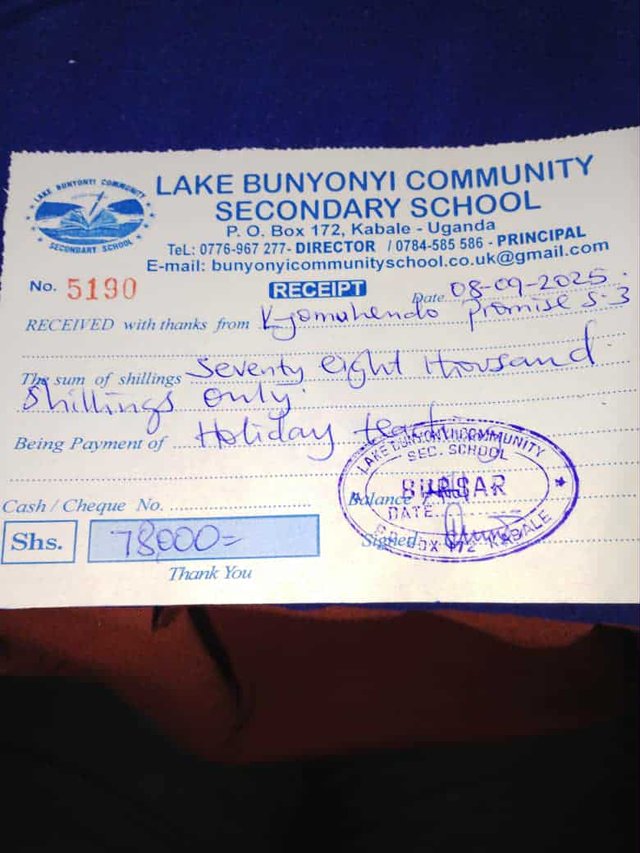 LAKE BUNYONYI COMMUNITY
SECONDARY SCHOOL
LAKE BUNYONYI COMMUNITY
SECONDARY SCHOOL
P. O. Box 172, Kabale - Uganda
TeL: 0776-967 277- DIRECTOR / 0784-585 586 - PRINCIPAL
E-mail: bunyonyicommunityschool.co.uk@gmail.com
No. 5190
RECEIPT
Date 08-09-2025.
RECEIVED with thanks from Kyomuhendo Promise S.3
The sum of shillings Seventy eight thousand
Shillings only.
Being Payment of Holiday
LAKE BUNYONYI COMMUNITY
SEC. SCHOOL
Cash / Cheque No.
Balance
BURSAR
DATE
Shs. 78,000=
Signed
BOX 172 KABALE
Thank You